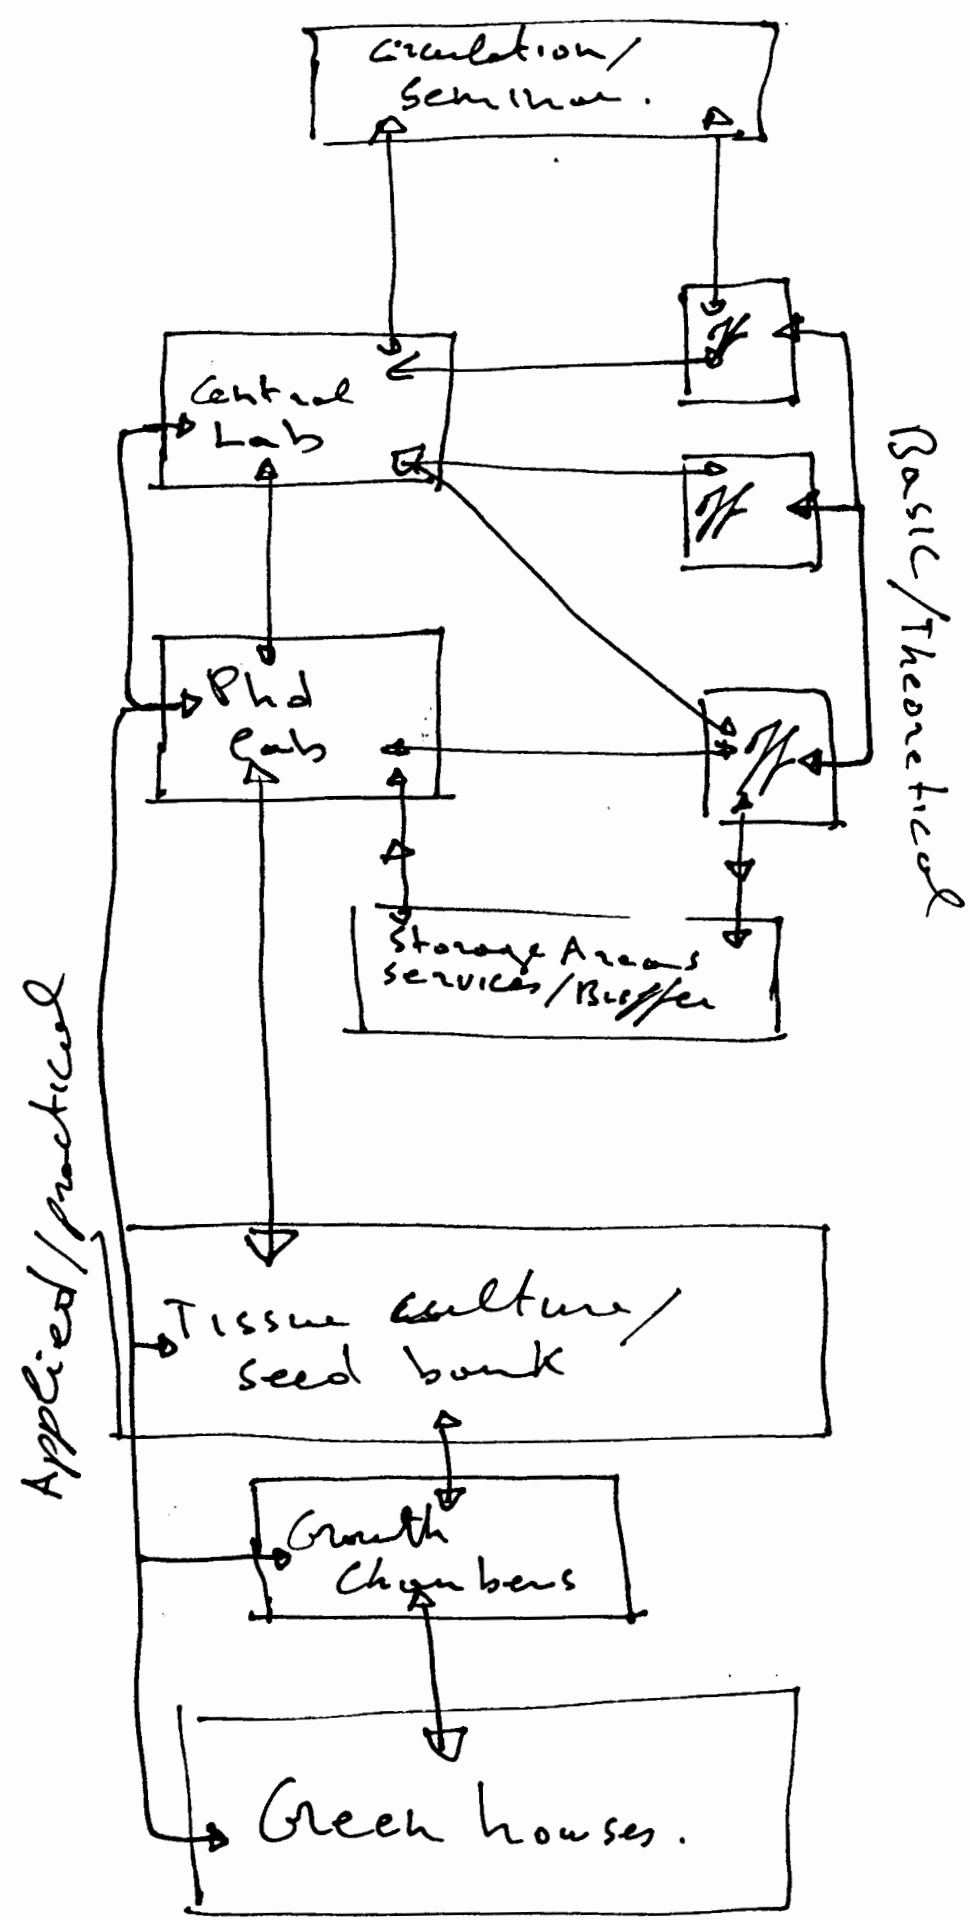 Circulation/
Seminar.
Central
Lab
Phd
Lab
Basic/Theoretical
Storage Areas
services/Buffer
Applied/practical
Tissue culture/
seed bank
Growth
Chambers
Green houses.